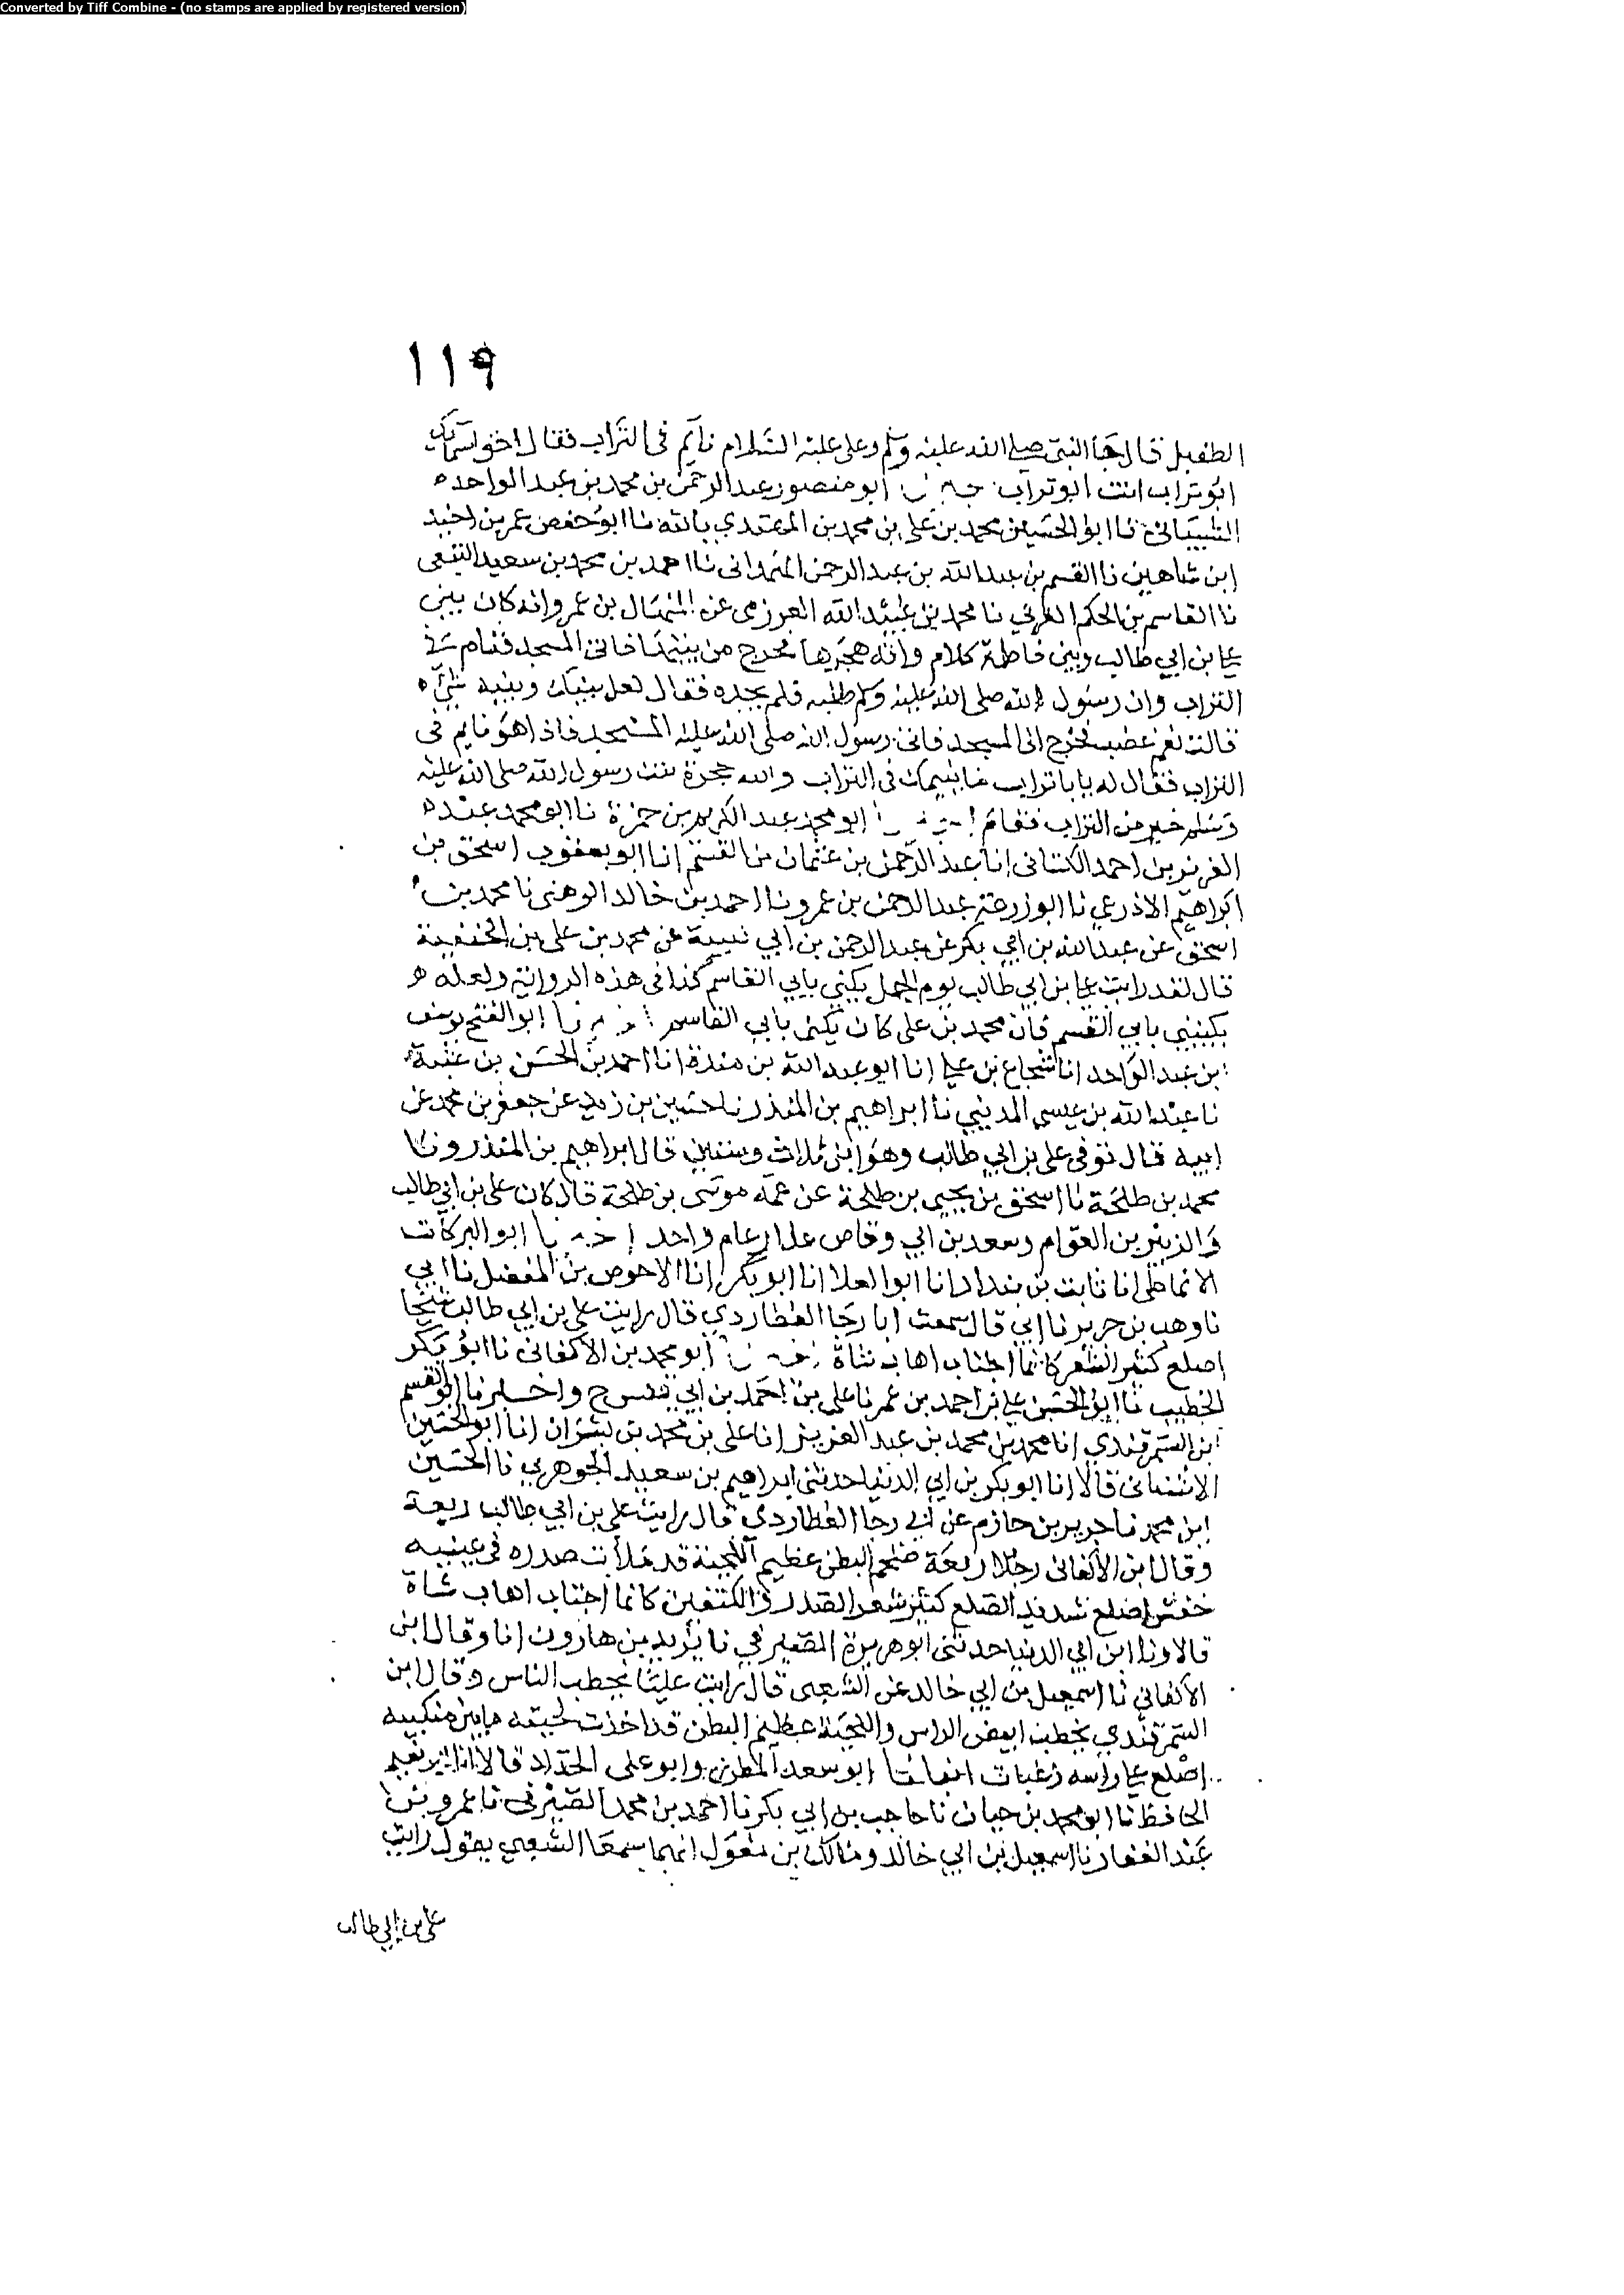 Converted by Tiff Combine - (no stamps are applied by registered version)
١١٩
الطفيل قال جا النبي صلى الله عليه وسلم وعلي عليه السلام نايم في التراب فقال احق اسمائك
ابو تراب انت ابو تراب ابو منصور عبد الرحمن بن محمد بن عبد الواحد
الشيباني نا ابو الحسين محمد بن علي بن محمد بن المهتدي بالله نا ابو حفص عمر بن احمد
ابن شاهين نا القسم بن عبد الله بن عبد الرحمن نا احمد بن محمد بن سعيد
نا القاسم بن الحكم العرني نا محمد بن عبيد الله العرزمي عن المنهال بن عمرو انه كان بين
علي بن ابي طالب وبين فاطمة كلام وانه هجرها فخرج من بيتها فاتى المسجد فنام في
التراب وان رسول الله صلى الله عليه وسلم طلبه فلم يجده فقال لعل بينك وبينه شي
قالت نعم غضب فخرج الى المسجد فاتى رسول الله صلى الله عليه المسجد فاذا هو نايم في
التراب فقال له يا با تراب ما ينيمك في التراب والله حجرة بنت رسول الله صلى الله عليه
وسلم خير من التراب فقام ابو محمد عبد الكريم بن حمزة نا ابو محمد عبد
العزيز بن احمد الكتاني انا عبد الرحمن بن عثمان بن القسم انا ابو يعقوب اسحق بن
ابراهيم الاذرعي نا ابو زرعة عبد الرحمن بن عمرو نا احمد بن خالد الوهبي نا محمد بن
اسحق عن عبد الله بن ابي بكر عن عبد الرحمن بن ابي عن محمد بن علي بن الحنفية
قال لقد رايت علي بن ابي طالب يوم الجمل يكني بابي القاسم كذا في هذه الرواية ولعله
يكنيني بابي القسم فان محمد بن علي كان يكنى بابي القاسم ابو الفتح يوسف
بن عبد الواحد انا شجاع بن علي انا ابو عبد الله بن مندة انا احمد بن الحسن بن عتبة
نا عبد الله بن عيسى المديني نا ابراهيم بن المنذر نا حسين بن زيد عن جعفر بن محمد عن
ابيه قال توفي علي بن ابي طالب وهو ابن ثلاث وستين قال ابراهيم بن المنذر ونا
محمد بن طلحة نا اسحق بن يحيى بن طلحة عن عمه موسى بن طلحة قال كان علي بن ابي طالب
والزبير بن العوام وسعد بن ابي وقاص عام واحد ابو البركات
الانماطي انا ثابت بن بندار انا ابو العلا انا ابو بكر انا الاحوص بن المفضل نا ابي
نا وهب بن جرير نا ابي قال سمعت ابا رجا العطاردي قال رايت علي بن ابي طالب شيخا
اصلع كثير الشعر كانما اجتاب اهاب شاة ابو محمد بن الاكفاني نا ابو بكر
الخطيب نا ابو الحسن علي بن احمد بن عمر نا علي بن احمد بن ابي قيس ح واخبرنا ابو القسم
ابن السمرقندي انا محمد بن محمد بن عبد العزيز انا علي بن محمد بن بشران انا ابو الحسين
الاشناني قالا انا ابو بكر بن ابي الدنيا حدثني ابراهيم بن سعيد الجوهري نا الحسين
ابن محمد نا جرير بن حازم عن ابي رجا العطاردي قال رايت علي بن ابي طالب ربعة
وقال ابن الاكفاني رجلا ربعة ضخم البطن عظيم اللحية قد ملأت صدره في عينيه
خفش اصلع شديد الصلع كثير شعر الصدر والكتفين كانما اجتاب اهاب شاة
قالا ونا ابن ابي الدنيا حدثني ابو هريرة الصيرفي نا يزيد بن هارون انا وقال ابن
الاكفاني نا اسمعيل بن ابي خالد عن الشعبي قال رايت عليا يخطب الناس وقال ابن
السمرقندي يخطب ابيض الراس واللحية عظيم البطن قد اخذت لحيته ما بين منكبيه
اصلع على راسه زغبات ابو سعد المطرز وابو علي الحداد قالا انا ابو نعيم
الحافظ نا ابو محمد بن حيان نا حاجب بن ابي بكر نا احمد بن محمد الصيرفي نا عمرو بن
عبد الغفار نا اسمعيل بن ابي خالد ومالك بن مغول انهما سمعا الشعبي يقول رايت
علي بن ابي طالب